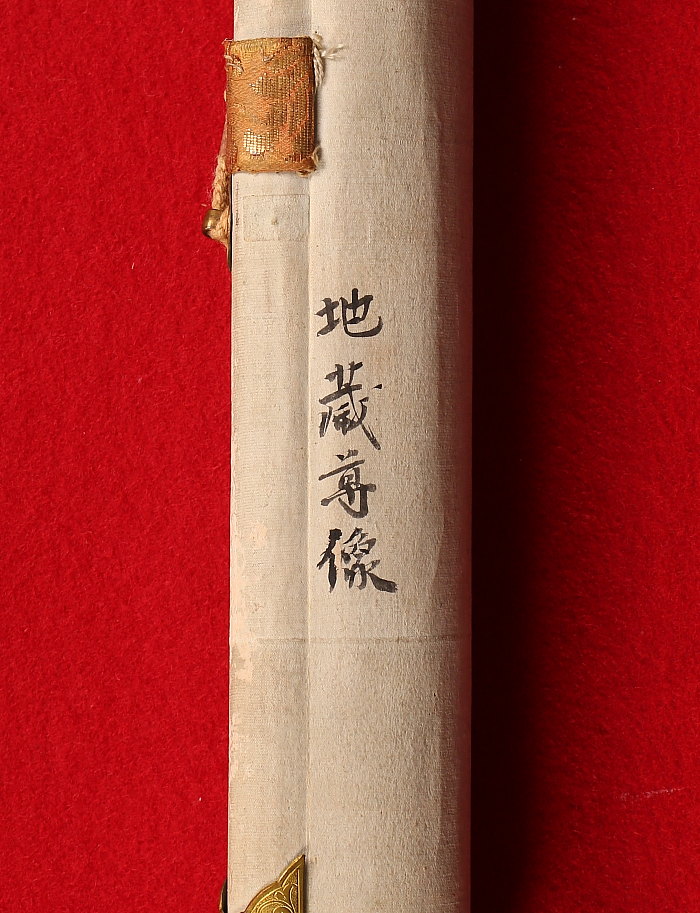 地蔵尊像